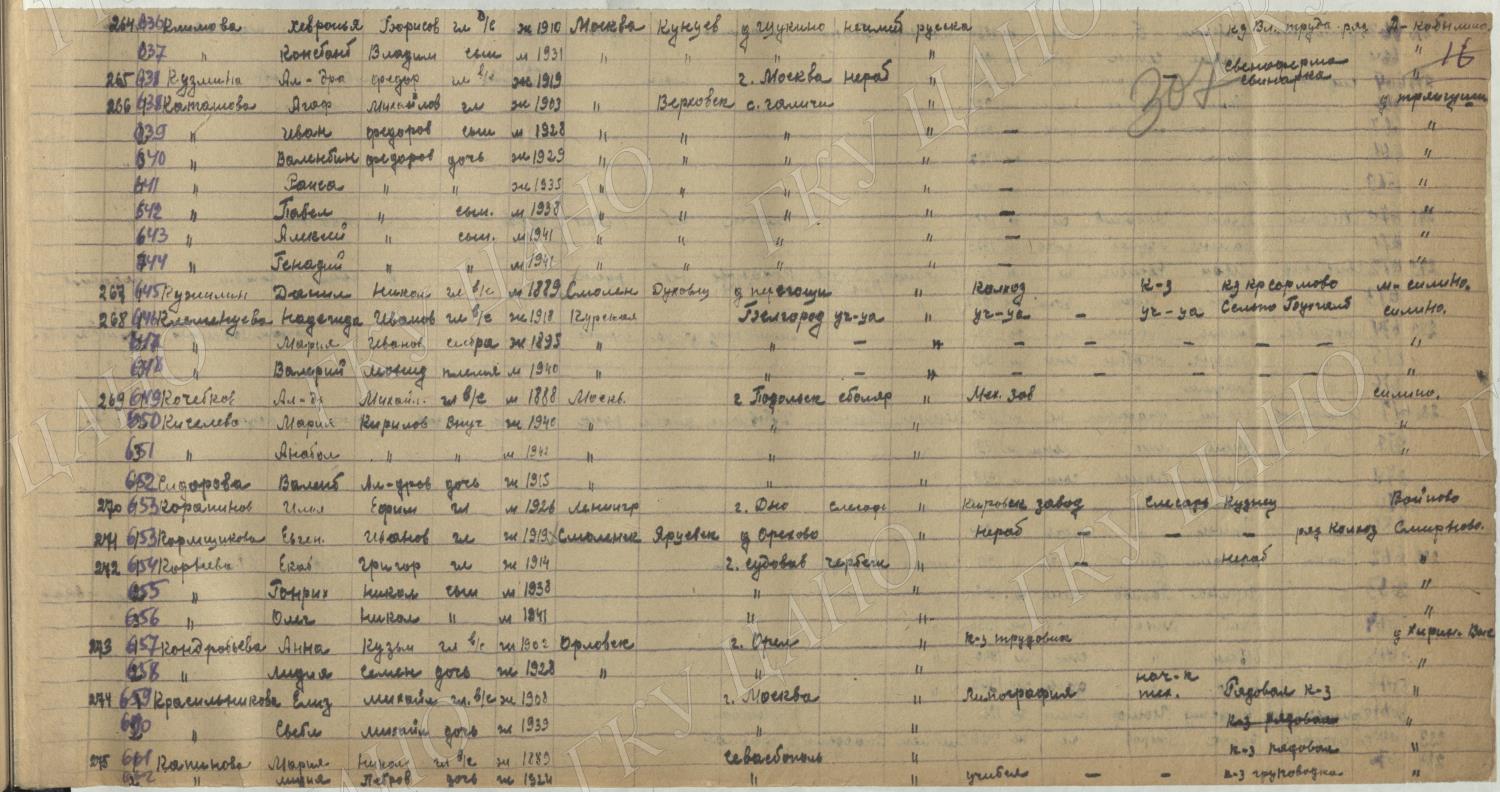 264 636 Климова Хевронья Борисов гл в/с ж 1910 Москва Кунцев д Щукино русска кз Вл. труда ряд Д-Кобылино.
637 " Констант Владим сын м 1931 " " " " " 16
265 638 Кузмина Ал-дра Федор гл в/с ж 1919 г. Москва нераб " — свиноферма свинарка "
307
266 638 Каташова Агаф Михайлов гл ж 1903 " Верховск с. Галичи "
639 " Иван Федоров сын м 1928 " " " " — "
640 " Валентин Федоров дочь ж 1929 " " " " — "
641 " Раиса " " ж 1935 " " " " — "
642 " Павел " сын. м 1938 " " " " — "
643 " Алексей " сын. м 1941 " " " " — "
644 " Генадий " " м 1941 " " " " — "
267 645 Данил Никол гл в/с м 1889 Смолен Духовщ д " колхоз к-з кз м-силино.
268 646 Клеменцева Надежда Иванов гл в/с ж 1918 Курская Белгород уч-ца " уч-ца — уч-ца силино.
647 " Мария Иванов сестра ж 1895 " " — " — — — — — "
648 " Валерий Леонид племя м 1940 " " — " — — — — — "
269 649 Кочетков Ал-др Михайл. гл в/с м 1888 Москв. г Подольск столяр " Мех. зав силино.
650 Киселева Мария Кирилов внуч ж 1940 " " " "
651 " Анатол " " м 1942 " " "
652 Сидорова Валент Ал-дров дочь ж 1915 " " "
270 653 Илья Ефим гл м 1926 Ленингр г. Дно слесарь " Кировск завод слесарь кузнец Войново
271 653 Кормщикова Евген. Иванов гл ж 1919 Смоленск Ярцевск д Орехово " нераб — — — ряд колхоз Смирново.
272 654 Корнева Екат Григор гл ж 1914 " — нераб "
655 " Генрих Никол сын м 1938 " " "
656 " Олег Никол " м 1941 " " "
273 657 Кондратьева Анна Кузьм гл в/с ж 1902 Орловск г. Орел " к-з трудовик
658 " Лидия Семен дочь ж 1928 " " " "
274 659 Красильникова Елиз Михайл гл. в/с ж 1908 г. Москва " Типография нач-к тех. Рядовая к-з "
660 " Светл Михайл дочь ж 1939 " " к-з рядовая "
275 661 Капинова Мария Никол гл в/с ж 1889 Севастополь " к-з рядовая "
662 " Лидия Петров дочь ж 1924 " " — — "
ГКУ ЦАНО